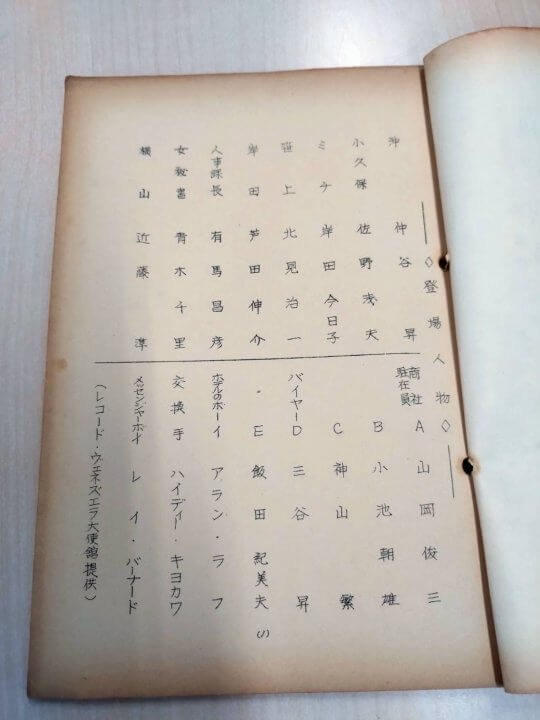 ◇登場人物◇
沖 仲谷昇
小久保 佐野浅夫
ミナ 岸田今日子
笹上 北見治一
岸田 芦田伸介
人事課長 有馬昌彦
女秘書 青木千里
横山 近藤準
商社駐在員 A 山岡俊三
B 小池朝雄
C 神山繁
バイヤー D 三谷昇
〃 E 飯田紀美夫
ホテルのボーイ アラン・ラフ
交換手 ハイディー・キヨカワ
メッセンジャーボーイ レイ・バーナード
(レコード・ヴェネズエラ大使館提供)
(1)